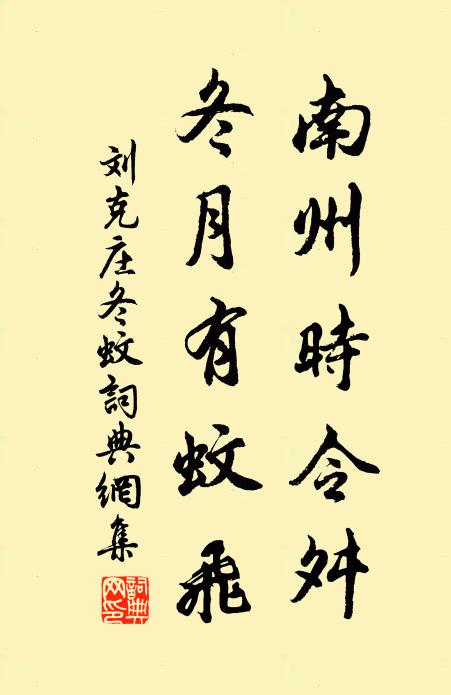 南州時令舛
冬月有蚊飛
刘克庄冬蚊詞典網集
詞典
网印